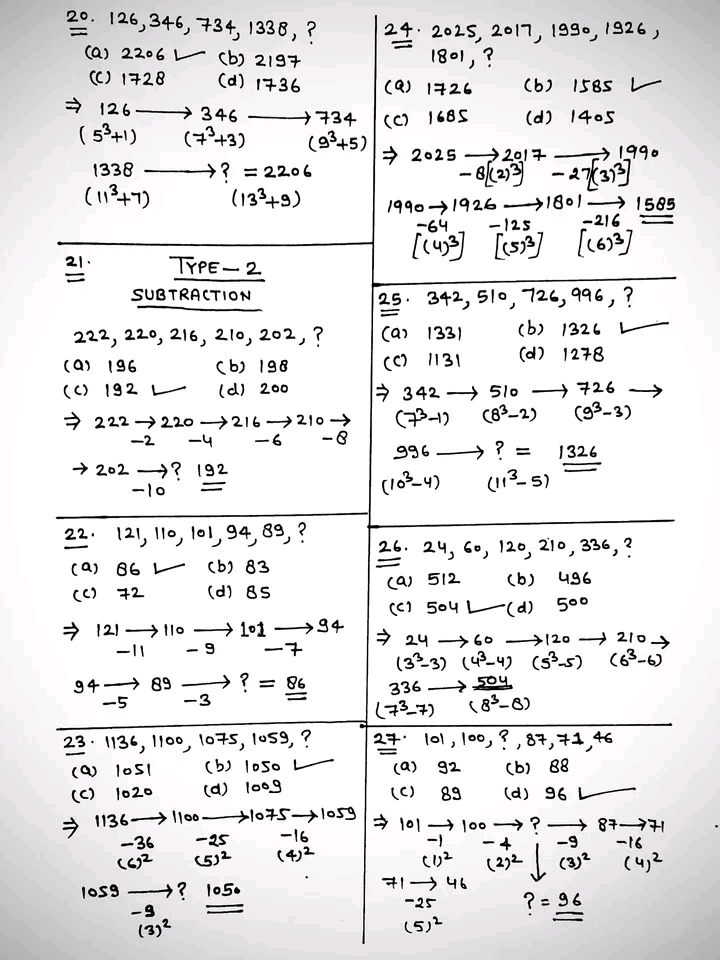 20. 126, 346, 734, 1338, ?
(a) 2206 ✓ (b) 2197
(c) 1728 (d) 1736
⇒ 126 → 346 → 734
(5³+1) (7³+3) (9³+5)
1338 → ? = 2206
(11³+7) (13³+9)
21. TYPE-2
SUBTRACTION
222, 220, 216, 210, 202, ?
(a) 196 (b) 198
(c) 192 ✓ (d) 200
⇒ 222 → 220 → 216 → 210 →
-2 -4 -6 -8
→ 202 → ? 192
-10
22. 121, 110, 101, 94, 89, ?
(a) 86 ✓ (b) 83
(c) 72 (d) 85
⇒ 121 → 110 → 101 → 94
-11 -9 -7
94 → 89 → ? = 86
-5 -3
23. 1136, 1100, 1075, 1059, ?
(a) 1051 (b) 1050 ✓
(c) 1020 (d) 1009
⇒ 1136 → 1100 → 1075 → 1059
-36 -25 -16
(6)² (5)² (4)²
1059 → ? 1050
-9
(3)²
24. 2025, 2017, 1990, 1926,
1801, ?
(a) 1726 (b) 1585 ✓
(c) 1685 (d) 1405
⇒ 2025 → 2017 → 1990
-8[(2)³] -27[(3)³]
1990 → 1926 → 1801 → 1585
-64 -125 -216
[(4)³] [(5)³] [(6)³]
25. 342, 510, 726, 996, ?
(a) 1331 (b) 1326 ✓
(c) 1131 (d) 1278
⇒ 342 → 510 → 726 →
(7³-1) (8³-2) (9³-3)
996 → ? = 1326
(10³-4) (11³-5)
26. 24, 60, 120, 210, 336, ?
(a) 512 (b) 496
(c) 504 ✓ (d) 500
⇒ 24 → 60 → 120 → 210 →
(3³-3) (4³-4) (5³-5) (6³-6)
336 → 504
(7³-7) (8³-8)
27. 101, 100, ?, 87, 71, 46
(a) 92 (b) 88
(c) 89 (d) 96 ✓
⇒ 101 → 100 → ? → 87 → 71
-1 -4 -9 -16
(1)² (2)² ↓ (3)² (4)²
71 → 46
-25 ? = 96
(5)²